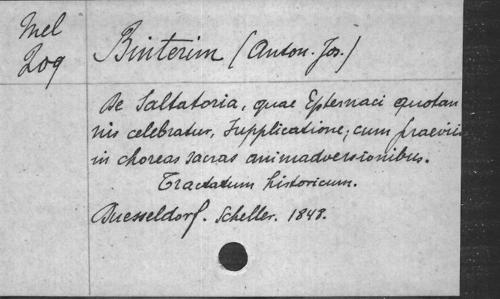 Mel
209
Binterim (Anton. Jos.)
De Saltatoria, quae Epternaci quotan
nis celebratur, Supplicatione; cum praeviis
in choreas sacras animadversionibus.
Tractatum historicum.
Duesseldorf. Scheller. 1848.